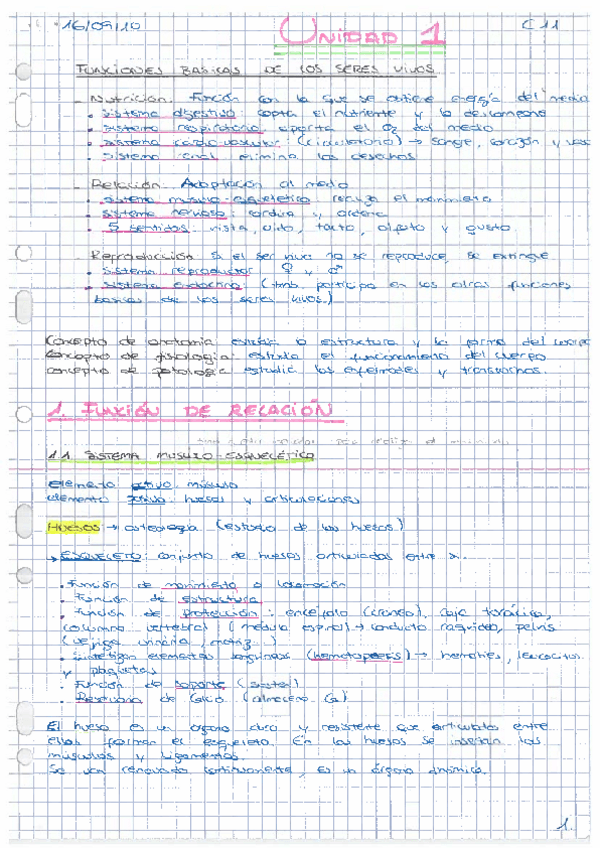 16/09/10
UNIDAD 1
C11
FUNCIONES BASICAS DE LOS SERES VIVOS
- Nutrición: Función con la que se obtiene energía del medio
• Sistema digestivo capta el nutriente y lo descompone
• Sistema respiratorio aporta el O2 del medio
• Sistema cardiovascular (circulatorio) → sangre, corazón y vasos
• Sistema renal elimina los desechos
- Relación: Adaptación al medio
• Sistema musculo-esquelético realiza el movimiento
• Sistema nervioso: conduce y ordena
• 5 sentidos: vista, oido, tacto, olfato y gusto
- Reproducción: Si el ser vivo no se reproduce, se extingue
• Sistema reproductor ♀ y ♂
• Sistema endocrino: (tmb. participa en las otras funciones
basicas de los seres vivos.)
Concepto de anatomia estudia la estructura y la forma del cuerpo
Concepto de fisiología: estudia el funcionamiento del cuerpo
concepto de patología estudia las enfermedades y transtornos.
1. FUNCIÓN DE RELACIÓN
1.1 SISTEMA MUSCULO-ESQUELÉTICO
elemento activo: músculo
elemento pasivo: huesos y articulaciones
HUESOS → osteología (estudio de los huesos)
→ ESQUELETO: conjunto de huesos articulados entre si.
• Función de movimiento o locomoción
• Función de estructura
• Función de protección: encéfalo (craneo), caja torácica,
columna vertebral (médula espinal) → conducto raquideo, pelvis
(vejiga urinaria, matriz)
• Sintetizan elementos sanguíneos (hematopoyesis) → hematíes, leucocitos
y plaquetas
• Función de soporte (sostén)
• Reservorio de calcio (almacena Ca)
El hueso es un órgano duro y resistente que articulados entre
ellos forman el esqueleto. En los huesos se insertan los
músculos y ligamentos.
Se van renovando continuamente, es un órgano dinámico.
1.